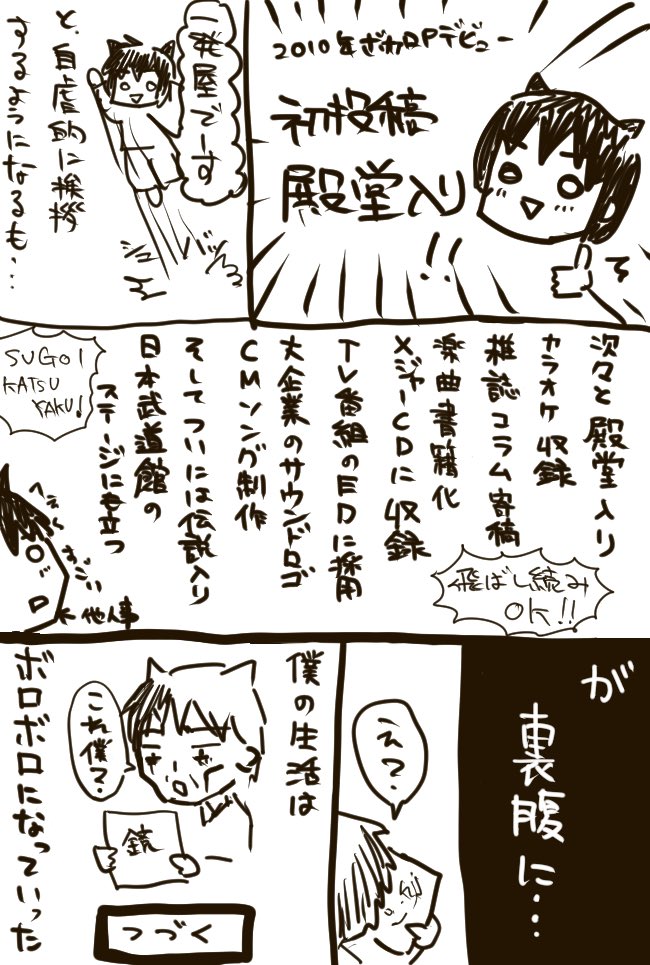 2010年ボカロPデビュー
初投稿
殿堂入り
!!
て
一発屋でーす
バッ
と、自虐的に挨拶
するようになるも…
次々と殿堂入り
カラオケ収録
雑誌コラム寄稿
楽曲書籍化
メジャーCDに収録
TV番組のEDに採用
大企業のサウンドロゴ
CMソング制作
そしてついには伝説入り
日本武道館の
ステージにも立つ
飛ばし読み
OK!!
SUGOI
KATSU
YAKU!
へぇー
すごい
他人事
が
裏腹に…
え?
僕の生活は
これ僕?
鏡
ボロボロになっていった
つづく